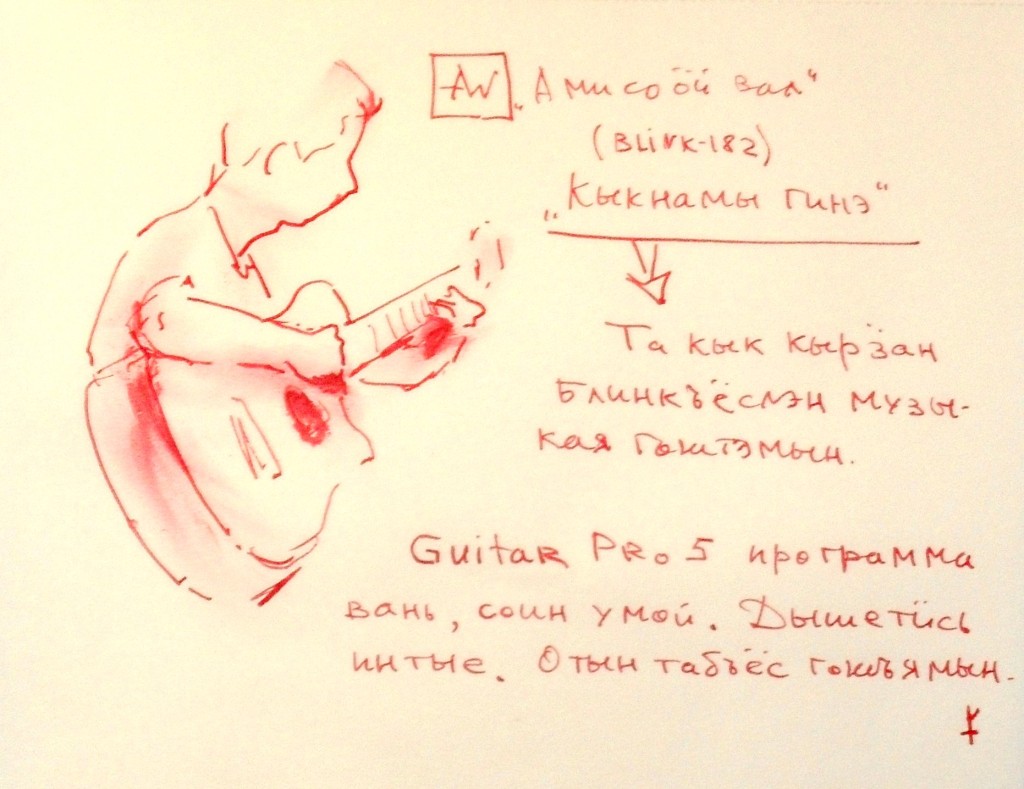 AW „Амисоӧй вал“
(BLINK-182)
„Кыкнамы гинэ“
Та кык кырӟан
Блинкъёслэн музы-
кая гожтэмын.
Guitar Pro 5 программа
вань, соин умой. Дышетӥсь
интые. Отын табъёс гожъямын.